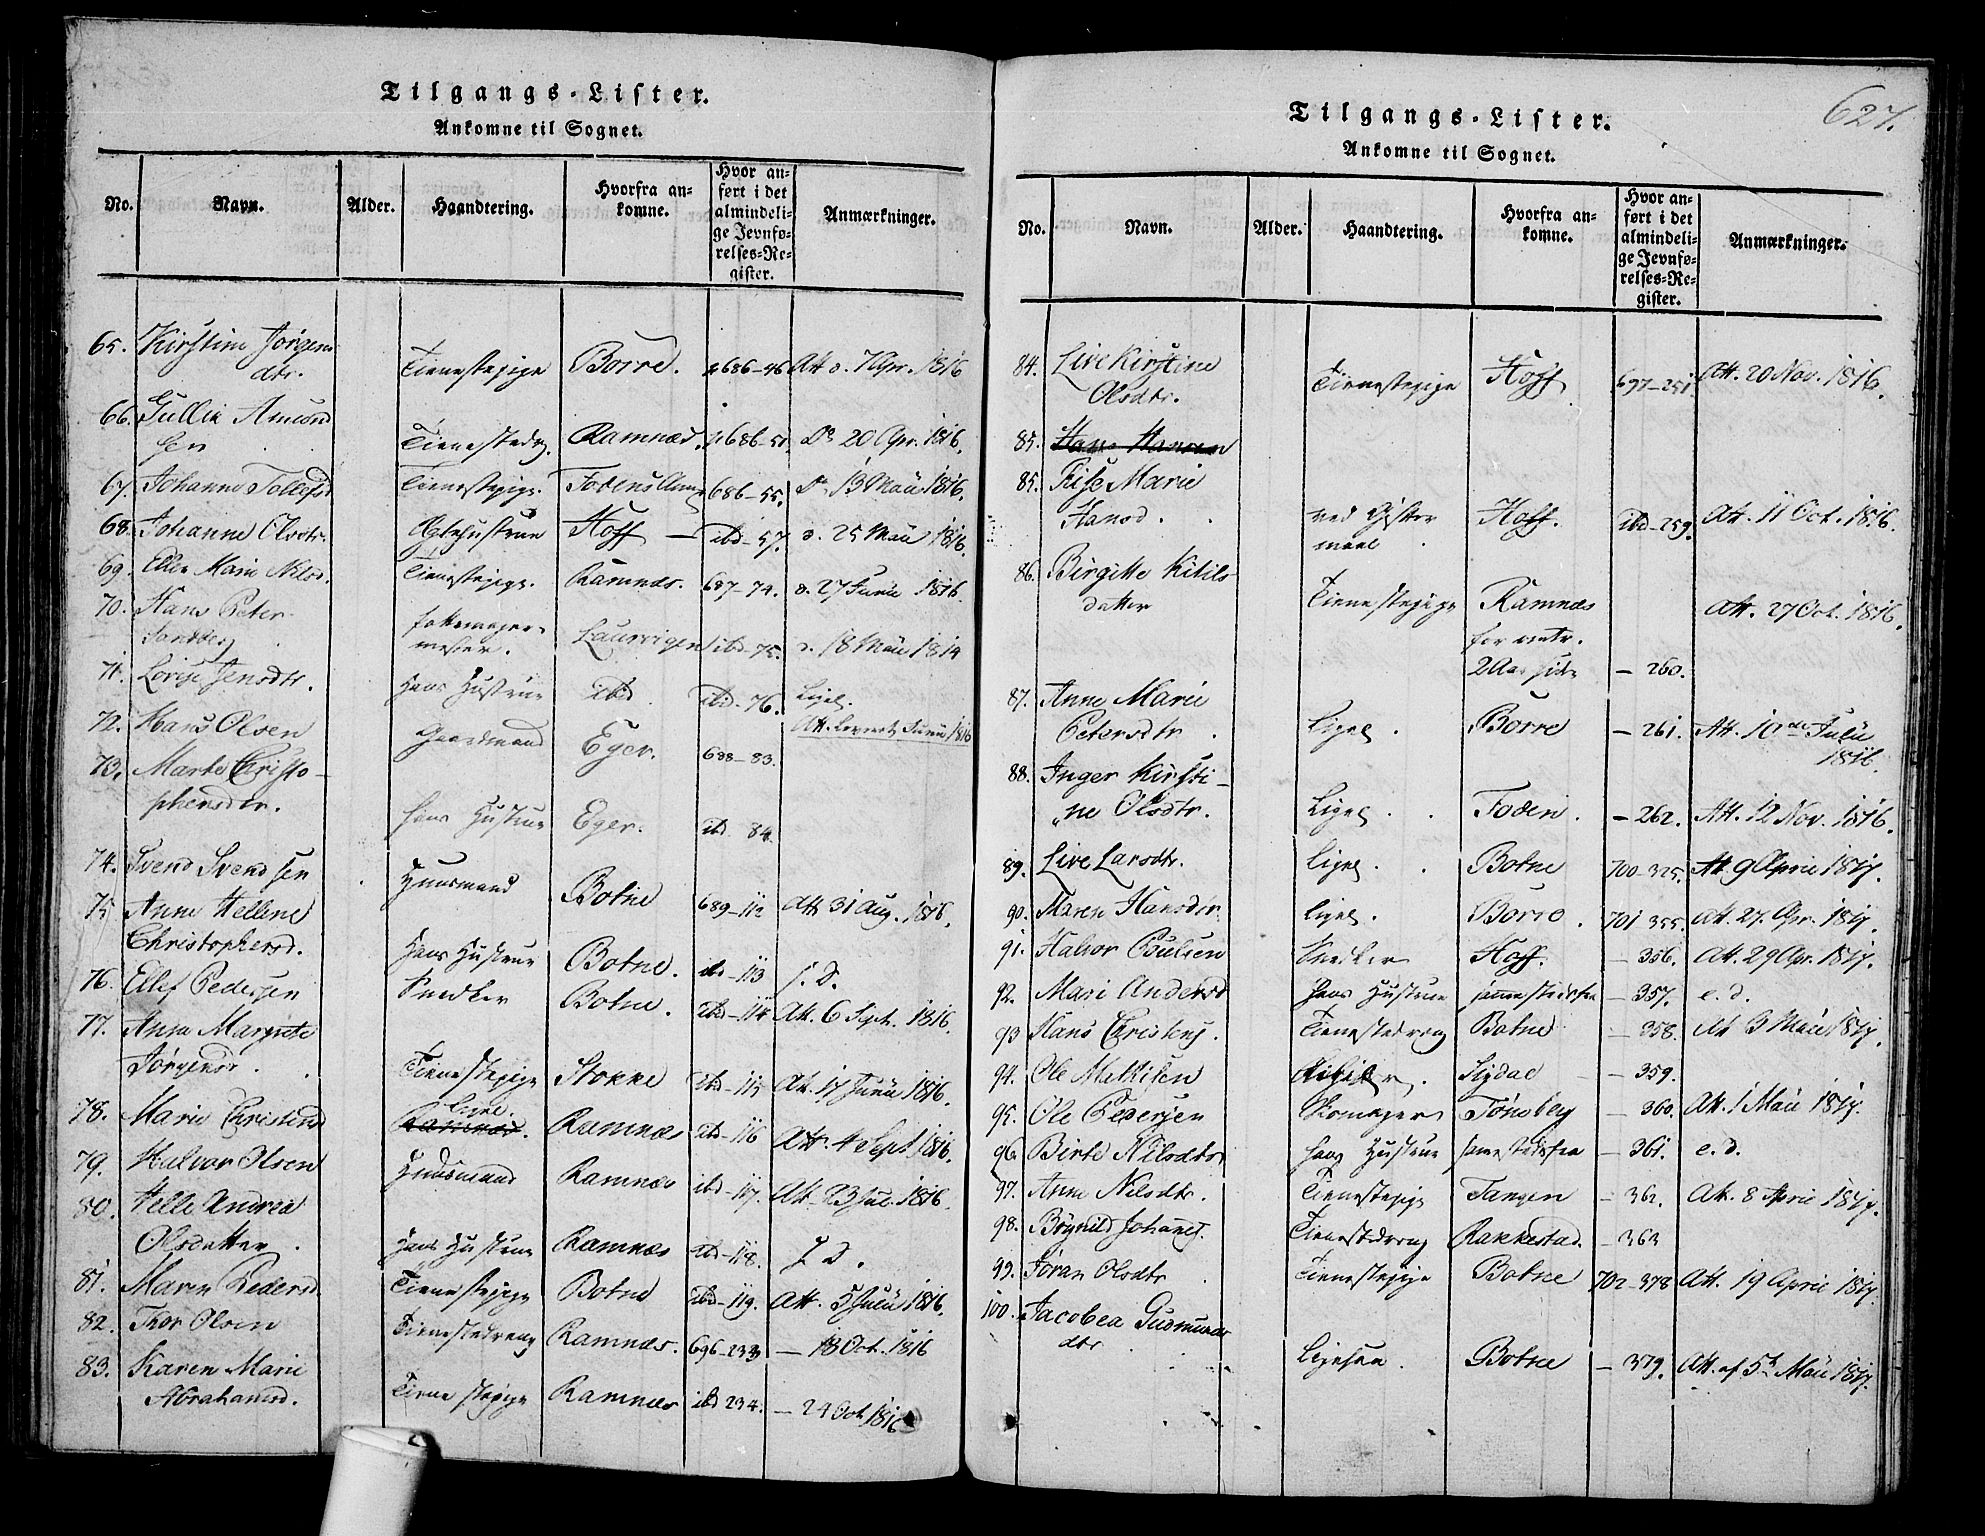 Tilgangs-Lister.
Ankomne til Sognet.
No. Navn. Alder. Haandtering. Hvorfra an-
komne. Hvor an-
ført i det
almindeli-
ge Jevnfø-
relses-Re-
gister. Anmærkninger.
65. Kirstine Jørgens
dtr. Tienestepige Borre. 686-46 Att. d. 7 Apr. 1816
66. Gullik Amund
sen Tienestedrg. Ramnæs. 686-51. Do 20 Apr. 1816.
67. Johanne Tollefsd Tienestepige. 686-55. Do 13 Maii 1816.
68. Johanne Olsdtr. Ægtehustrue Hoff — ibd-57. d. 25 Maii 1816.
69. Ellen Marie Nilsd. Tienestepige. Ramnæs. 687-74. d. 27 Junii 1816.
70. Hans Peter
mester. Laurvigen ibd-75. d. 18 Maii 1814
71. Lovise Jensdtr. Hans Hustrue ibd. ibd-76. Ligel.
72. Hans Olsen Gaardmand Eger. 688-83. Att. Junii 1816
73. Marte Christo-
phersdtr. Hans Hustrue Eger. ibd. 84.
74. Svend Svendsen Huusmand Botne 689-112 Att 31 Aug. 1816.
75 Anne Hellene
Christophersd. Hans Hustrue Botne. ibd-113 s. D.
76. Ellef Pedersen Snedker Botne. ibd-114 Att. 6 Sept. 1816.
77. Anna Margrete
Jørgensd. Tienestepige Stokke ibd-115 Att. 17 Junii 1816.
78. Marie Christensd Ligel.
Ramnæs. Ramnæs ibd-116 Att. 4 Sept 1816.
79. Halvor Olsen Huusmand Ramnæs ibd-117. Att. 23 Jul. 1816.
80. Helle Andrea
Olsdatter. Hans Hustrue Ramnæs ibd-118. s D.
81. Maren Pedersd. Tienestepige Botne ibd-119. Att. 5 Julii 1816.
82. Thor Olsen Tienestedreng Ramnæs. 696-233 — 18 Oct. 1816
83. Karen Marie
Abrahamsd. Tienestepige Ramnæs ibd 234. — 24 Oct 1816
627.
Tilgangs-Lister.
Ankomne til Sognet.
No. Navn. Alder. Haandtering. Hvorfra an-
komne. Hvor an-
ført i det
almindeli-
ge Jevnfø-
relses-Re-
gister. Anmærkninger.
84. Live Kirstine
Olsdtr. Tienestepige Hoff 697-251 Att. 20 Nov. 1816.
85. Hans Hansen
85. Marie
Hansd. ved Gifter
maal Hoff. ibd-259. Att. 11 Oct. 1816.
86. Birgitte Kitils-
datter Tienestepige Ramnæs
for omtr.
2 Aar siden — 260. Att. 27 Oct. 1816.
87. Anne Marie
Petersdtr. Ligel. Borre — 261. Att. 10de Julii
1816.
88. Inger Kirsti-
ne Olsdtr. Ligel. Foden. — 262. Att. 12 Nov. 1816.
89. Live Larsdtr. Ligel. Botne 700-325. Att 9 Aprie 1817.
90. Maren Hansdtr. Ligel. Borre. 701 355. Att. 27. Apr. 1817.
91. Halvor Poulsen Snedker Hoff. — 356. Att. 29 Apr. 1817.
92. Mari Andersd Hans Hustrue sammestedsfra — 357. e. d.
93 Hans Christens. Tienestedreng Botne — 358. Att 3 Maii 1817.
94. Ole Mathisen Sigdal — 359.
95. Ole Pedersen Skomager Tønsberg — 360. Att. 1 Maii 1817.
96. Birte Nilsdtr Hans Hustrue samestedsfra — 361. e. d.
97. Anne Nilsdtr. Tienestepige Tangen — 362. Att. 8 Aprie 1817.
98. Johannes. Tienestedreng Rakkestad. — 363
99. Jøran Olsdtr Tienestepige Botne 702-378 Att. 19 Aprie 1817.
100. Jacobea Gudmunds
dtr Ligesaa. Botne — 379. Att. af 5te Maii 1817.